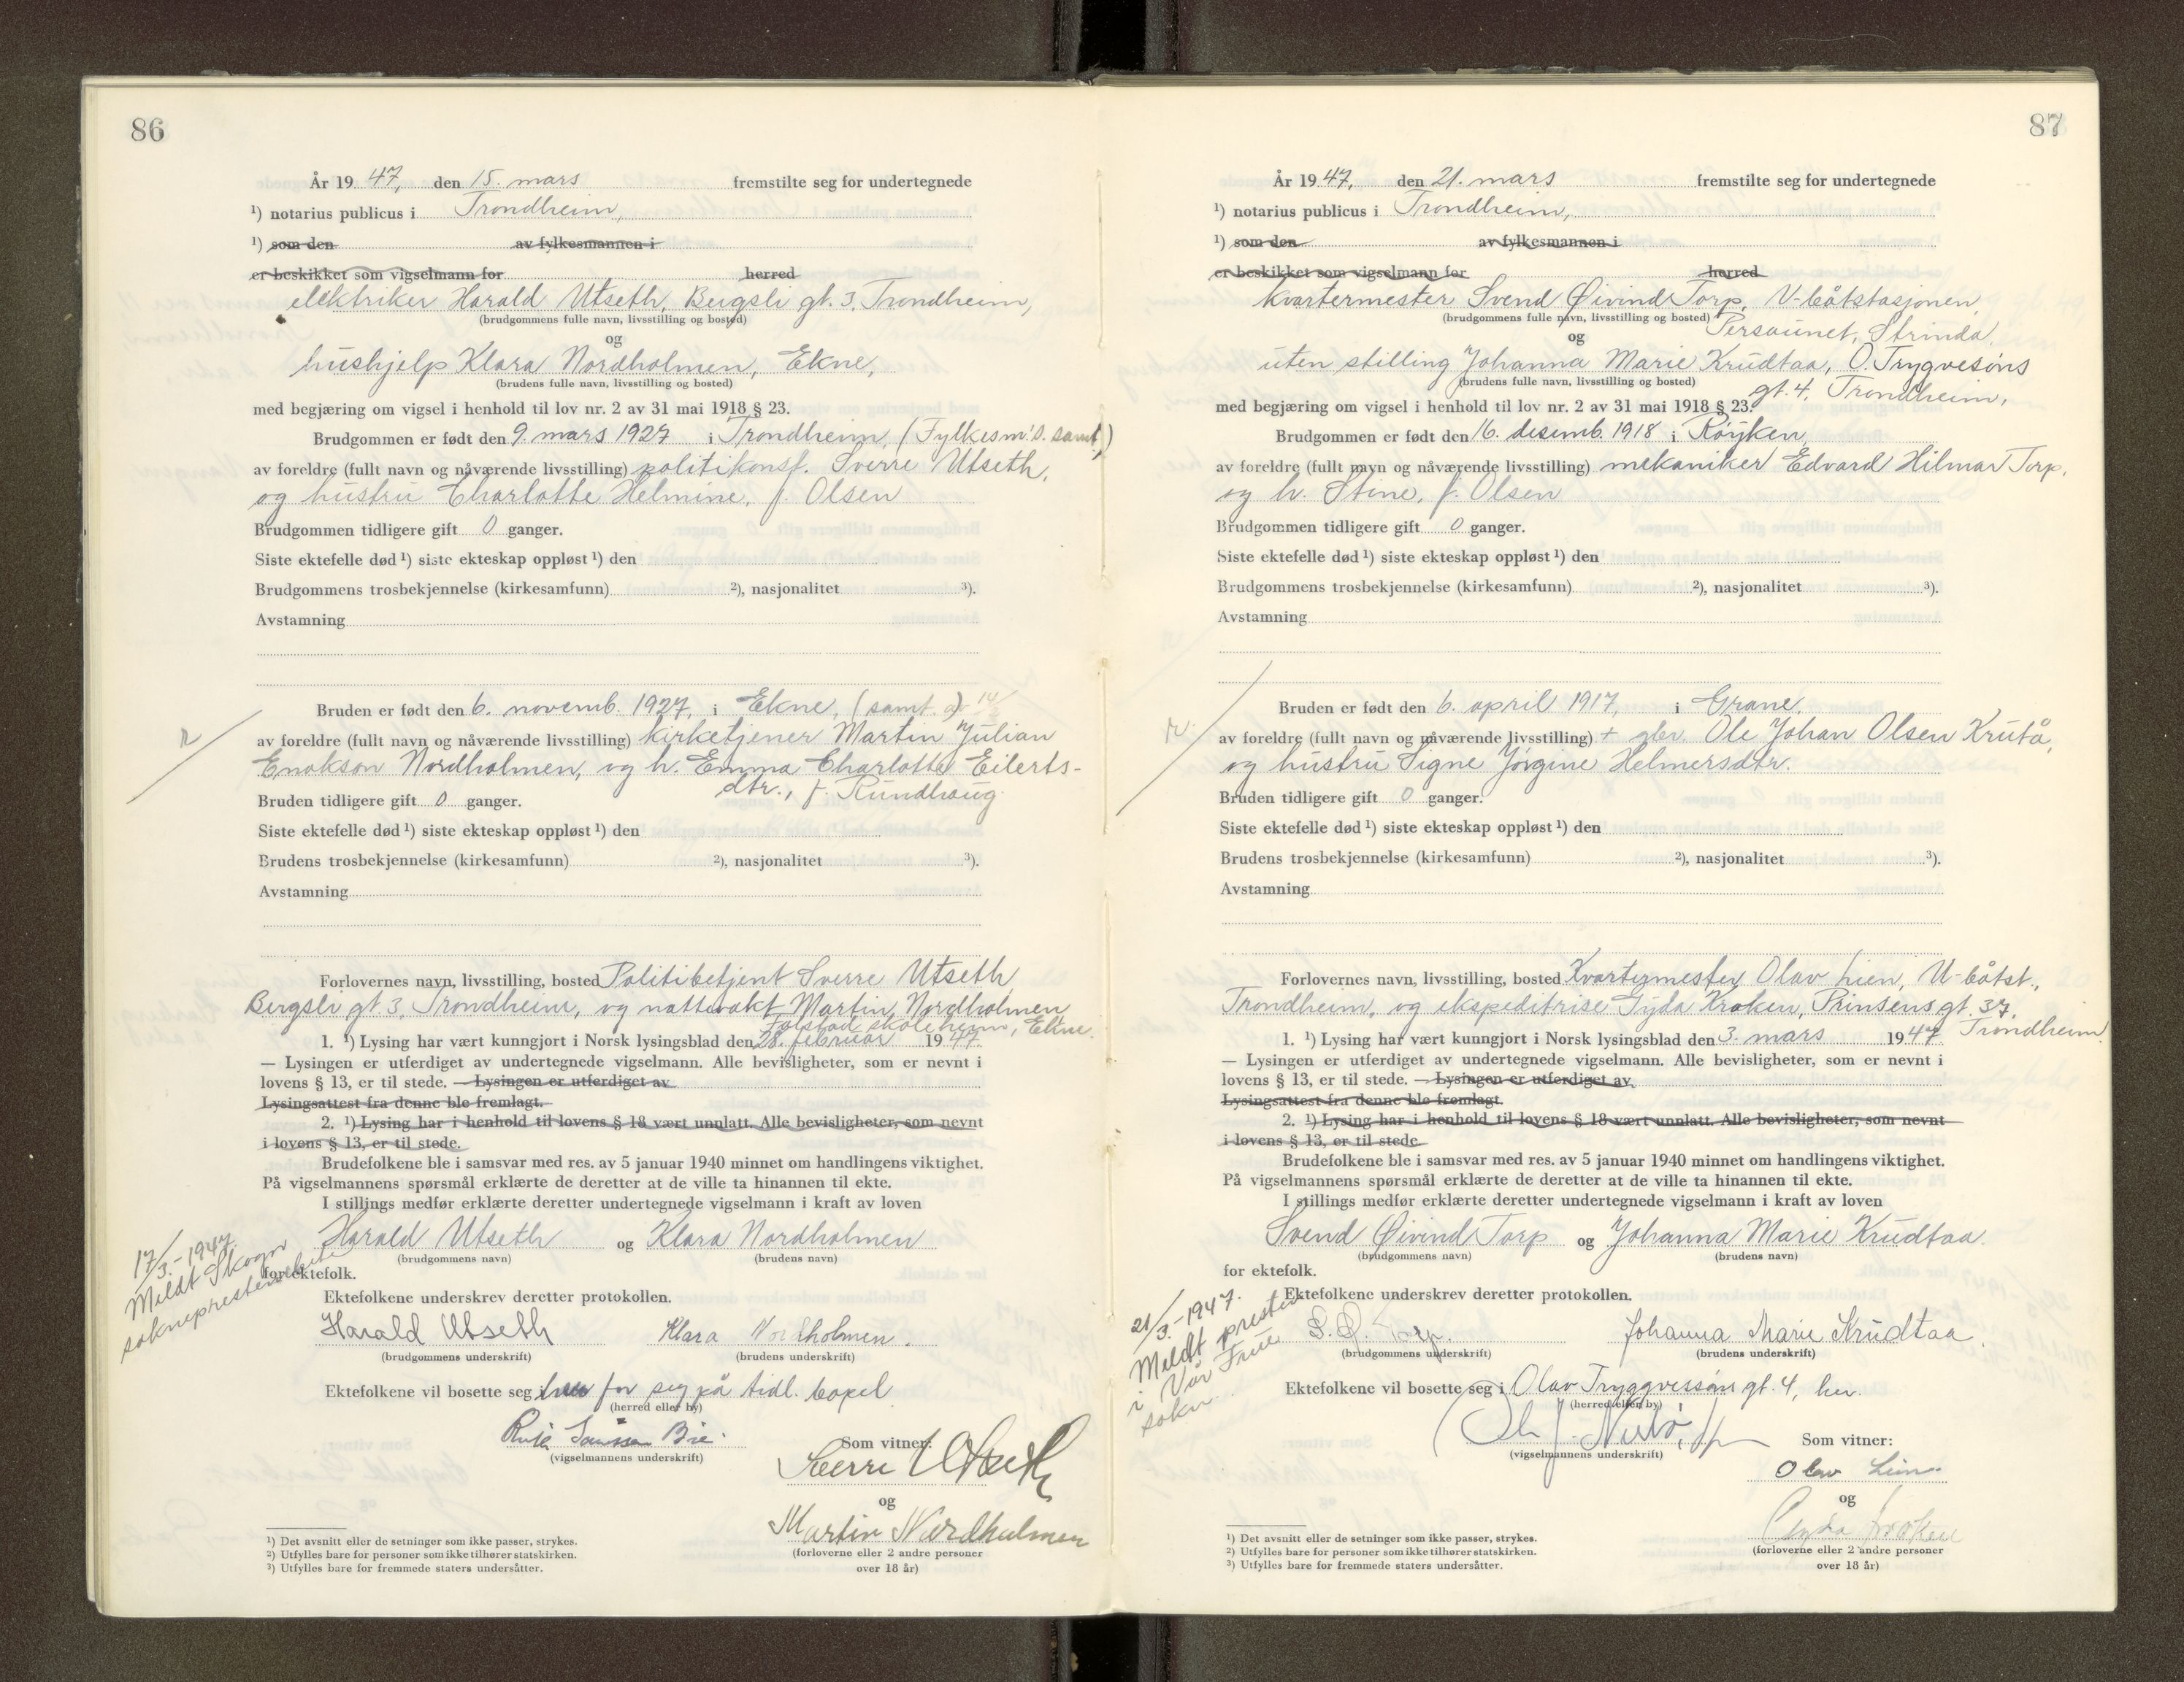 86
År 19 47, den 15. mars fremstilte seg for undertegnede
¹) notarius publicus i Trondheim,
¹) som den av fylkesmannen i
er beskikket som vigselmann for herred
elektriker Harald Utseth, Bergsli gt. 3, Trondheim,
(brudgommens fulle navn, livsstilling og bosted)
og
hushjelp Klara Nordholmen, Ekne,
(brudens fulle navn, livsstilling og bosted)
med begjæring om vigsel i henhold til lov nr. 2 av 31 mai 1918 § 23.
Brudgommen er født den 9. mars 1927 i Trondheim, (Fylkesm's. samt.)
av foreldre (fullt navn og nåværende livsstilling) politikonst. Sverre Utseth,
og hustru Charlotte Helmine, f. Olsen
Brudgommen tidligere gift 0 ganger.
Siste ektefelle død ¹) siste ekteskap oppløst ¹) den
Brudgommens trosbekjennelse (kirkesamfunn) ²), nasjonalitet ³).
Avstamning
Bruden er født den 6. novemb. 1927, i Ekne, (samt. av 14/
av foreldre (fullt navn og nåværende livsstilling) kirketjener Martin Julian
Enokson Nordholmen, og h. Emma Charlotte Eilerts-
dtr., f. Rundhaug
Bruden tidligere gift 0 ganger.
Siste ektefelle død ¹) siste ekteskap oppløst ¹) den
Brudens trosbekjennelse (kirkesamfunn) ²), nasjonalitet ³).
Avstamning
Forlovernes navn, livsstilling, bosted Politibetjent Sverre Utseth,
Bergsli gt. 3, Trondheim, og nattevakt Martin Nordholmen
Falstad skoleheim, Ekne.
1. ¹) Lysing har vært kunngjort i Norsk lysingsblad den 28. februar 19 47.
— Lysingen er utferdiget av undertegnede vigselmann. Alle bevisligheter, som er nevnt i
lovens § 13, er til stede. — Lysingen er utferdiget av
Lysingsattest fra denne ble fremlagt.
2. ¹) Lysing har i henhold til lovens § 18 vært unnlatt. Alle bevisligheter, som nevnt
i lovens § 13, er til stede.
Brudefolkene ble i samsvar med res. av 5 januar 1940 minnet om handlingens viktighet.
På vigselmannens spørsmål erklærte de deretter at de ville ta hinannen til ekte.
I stillings medfør erklærte deretter undertegnede vigselmann i kraft av loven
Harald Utseth og Klara Nordholmen
(brudgommens navn) (brudens navn)
for ektefolk.
17/3.-1947.
Meldt Skogn
sokneprestembete
Ektefolkene underskrev deretter protokollen.
Harald Utseth Klara Nordholmen.
(brudgommens underskrift) (brudens underskrift)
Ektefolkene vil bosette seg i hver for seg på tidl. bopel
(herred eller by)
(vigselmannens underskrift)
Som vitner:
Sverre Utseth
og
Martin Nordholmen
(forloverne eller 2 andre personer
over 18 år)
¹) Det avsnitt eller de setninger som ikke passer, strykes.
²) Utfylles bare for personer som ikke tilhører statskirken.
³) Utfylles bare for fremmede staters undersåtter.
87
År 19 47, den 21. mars fremstilte seg for undertegnede
¹) notarius publicus i Trondheim,
¹) som den av fylkesmannen i
er beskikket som vigselmann for herred
kvartermester Svend Øivind Torp, U-båtstasjonen,
(brudgommens fulle navn, livsstilling og bosted) Persaunet, Strinda,
og
uten stilling Johanna Marie Krudtaa, O. Trygvesøns
(brudens fulle navn, livsstilling og bosted) gt. 4, Trondheim,
med begjæring om vigsel i henhold til lov nr. 2 av 31 mai 1918 § 23.
Brudgommen er født den 16. desemb. 1918 i Røyken,
av foreldre (fullt navn og nåværende livsstilling) mekaniker Edvard Hilmar Torp,
og h. Stine, f. Olsen
Brudgommen tidligere gift 0 ganger.
Siste ektefelle død ¹) siste ekteskap oppløst ¹) den
Brudgommens trosbekjennelse (kirkesamfunn) ²), nasjonalitet ³).
Avstamning
Bruden er født den 6. april 1917, i Grane,
av foreldre (fullt navn og nåværende livsstilling) + gbr. Ole Johan Olsen Krutå,
og hustru Signe Jørgine Helmersdtr.
Bruden tidligere gift 0 ganger.
Siste ektefelle død ¹) siste ekteskap oppløst ¹) den
Brudens trosbekjennelse (kirkesamfunn) ²), nasjonalitet ³).
Avstamning
Forlovernes navn, livsstilling, bosted Kvartermester Olav Lien, U-båtst.,
Trondheim, og ekspeditrise Gyda Kroken, Prinsens gt. 37,
Trondheim
1. ¹) Lysing har vært kunngjort i Norsk lysingsblad den 3. mars 19 47.
— Lysingen er utferdiget av undertegnede vigselmann. Alle bevisligheter, som er nevnt i
lovens § 13, er til stede. — Lysingen er utferdiget av
Lysingsattest fra denne ble fremlagt.
2. ¹) Lysing har i henhold til lovens § 18 vært unnlatt. Alle bevisligheter, som nevnt
i lovens § 13, er til stede.
Brudefolkene ble i samsvar med res. av 5 januar 1940 minnet om handlingens viktighet.
På vigselmannens spørsmål erklærte de deretter at de ville ta hinannen til ekte.
I stillings medfør erklærte deretter undertegnede vigselmann i kraft av loven
Svend Øivind Torp og Johanna Marie Krudtaa.
(brudgommens navn) (brudens navn)
for ektefolk.
21/3.-1947.
Meldt presten
i Vår Frue
sokn.
Ektefolkene underskrev deretter protokollen.
S. Ø. Torp. Johanna Marie Krudtaa
(brudgommens underskrift) (brudens underskrift)
Ektefolkene vil bosette seg i Olav Tryggvessøns gt. 4, her.
(herred eller by)
(vigselmannens underskrift)
Som vitner:
Olav Lien
og
Gyda Kroken
(forloverne eller 2 andre personer
over 18 år)
¹) Det avsnitt eller de setninger som ikke passer, strykes.
²) Utfylles bare for personer som ikke tilhører statskirken.
³) Utfylles bare for fremmede staters undersåtter.